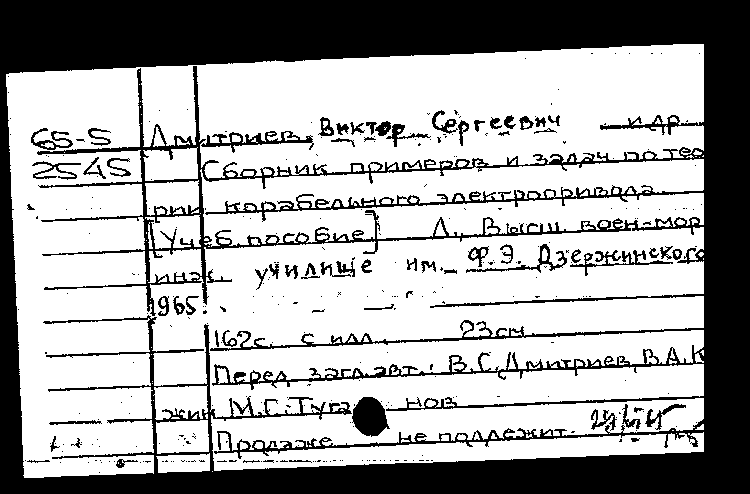 65-5 Дмитриев, Виктор Сергеевич и др.
2545 Сборник примеров и задач по тео
рии корабельного электропривода.
[Учеб. пособие] Л., Высш. воен-мор
инж. училище им. Ф.Э. Дзержинского
1965.
162с. с илл. 23см.
Перед загл. авт.: В.С. Дмитриев, В.А. К
жин М.С. Туга нов
Продаже не подлежит.